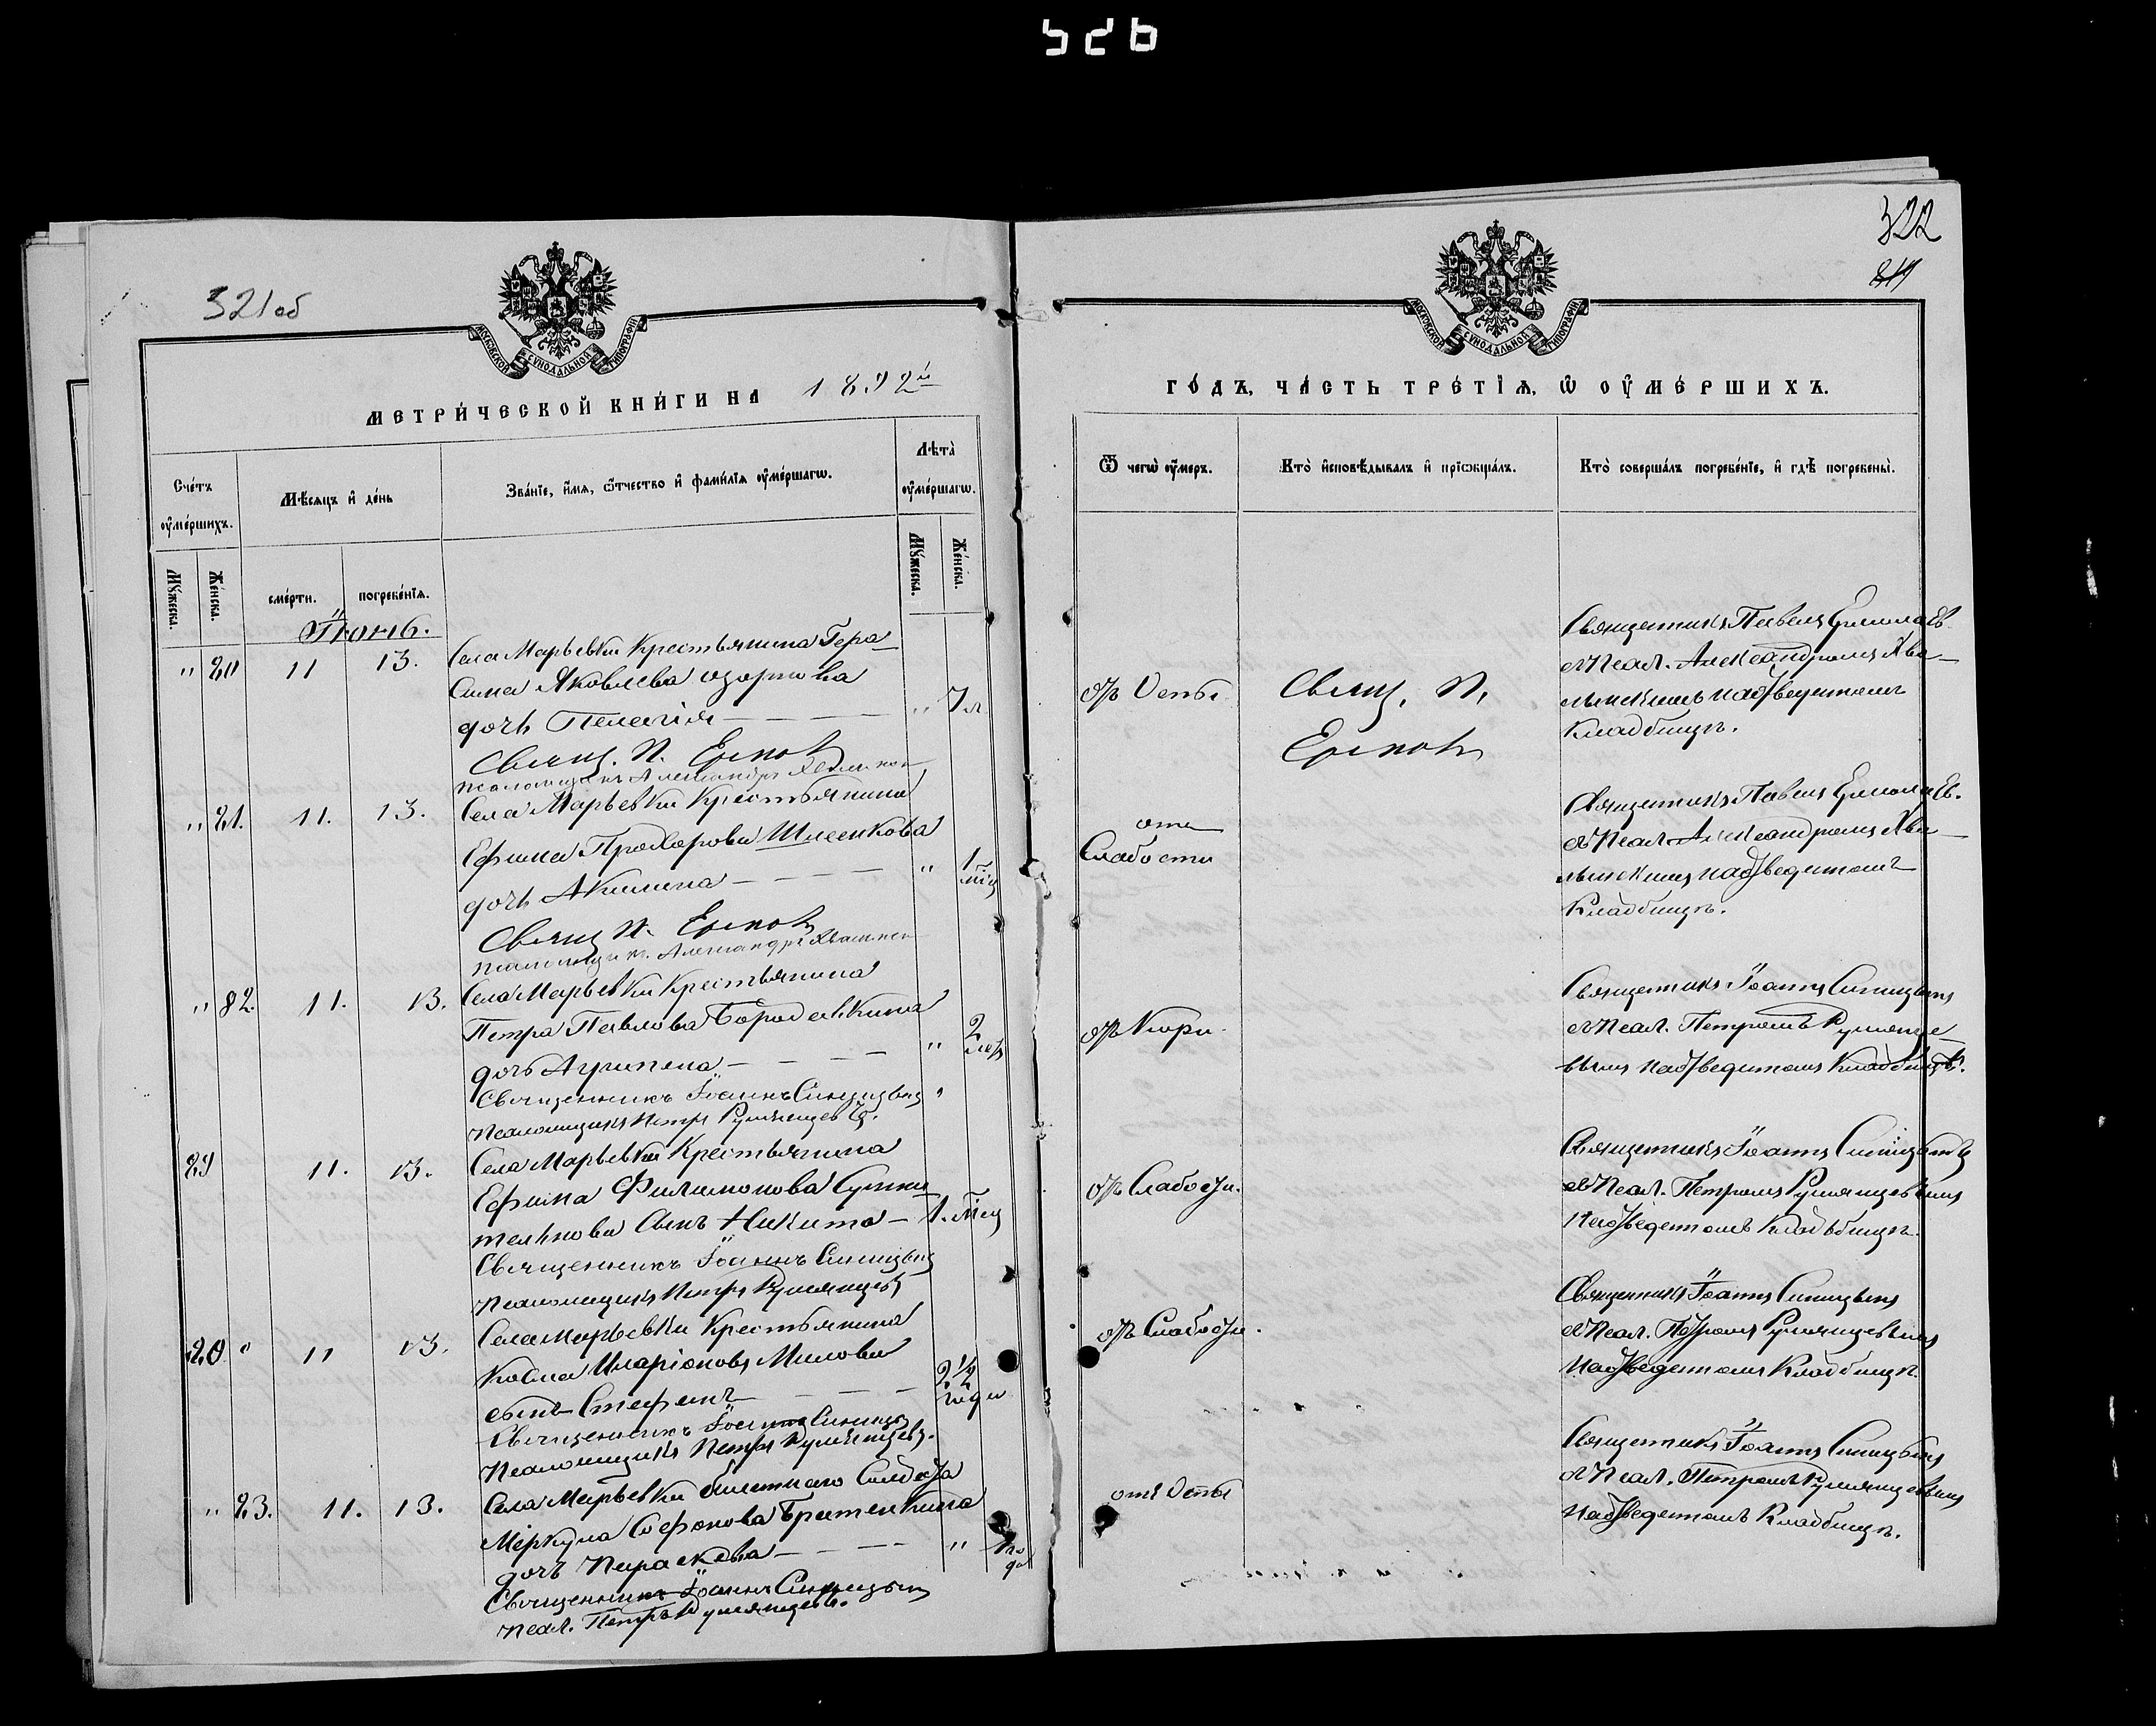 526
321об
МОСКОВСКОЙ СѴНОДАЛЬНОЙ ТИПОГРАФІИ
МЕТРИЧЕСКОЙ КНИГИ НА 1892й
Счетъ оумершихъ.
Мѣсяцъ и день
Званіе, имя, отчество и фамилія оумершагѡ.
Лѣта оумершагѡ.
Мужеска.
Женска.
смерти.
погребенія.
Мужеска.
Женска.
Іюнь.
" 20 11 13. Села Марьевки Крестьянина Гера-
сима Яковлева
дочь Пелагія — — — " 7 л
Свящ. П.
псаломщикъ Александръ
" 21. 11. 13. Села Марьевки Крестьянина
Ефима Прохорова
дочь Акилина — — — " 1 мѣц
Свящ П.
псаломщикъ Александръ
" 22. 11. 13. Села Марьевки Крестьянина
Петра Павлова Бородавкина
дочь Агрипена — — — " 2 лѣт
Священникъ Іоаннъ Синицынъ
Псаломщикъ Петръ Румянцевъ.
11. 13. Села Марьевки Крестьянина
Ефима Филимонова
сынъ Никита — 1. мѣц
Священникъ Іоаннъ Синицынъ
Псаломщикъ Петръ Румянцевъ
20 " 11 13. Села Марьевки Крестьянина
Косма Иларіонова Милова
сынъ Стефанъ — — — 2 1/2 года
Священникъ Іоаннъ Синицын
Псаломщикъ Петръ Румянцевъ.
" 23. 11. 13. Села Марьевки билетнаго Солдата
Меркула Софонова Братенкина
дочь Параскева — — — "
Священникъ Іоаннъ Синицын
Псал. Петръ Румянцевъ.
322
МОСКОВСКОЙ СѴНОДАЛЬНОЙ ТИПОГРАФІИ
ГОДЪ, ЧАСТЬ ТРЕТІЯ, Ѡ ОУМЕРШИХЪ.
Ѿ чегѡ оумеръ.
Кто исповѣдывалъ и пріѡбщалъ.
Кто совершалъ погребеніе, и гдѣ погребены.
отъ Оспы
Свящ. П.
Священникъ Павелъ
съ Псал. Александромъ Хва-
лынскимъ на отведенномъ
Кладбищѣ.
отъ
Слабости
Священникъ Павелъ
съ Псал. Александромъ Хва-
лынскимъ на отведенномъ
Кладбищѣ.
отъ Кори.
Священникъ Іоаннъ Синицынъ
съ Псал. Петромъ Румянце-
вымъ на отведенномъ Кладбищѣ.
отъ Слабости.
Священникъ Іоаннъ Синицынъ
съ Псал. Петромъ Румянцевымъ
на отведенномъ Кладбищѣ.
отъ Слабости.
Священникъ Іоаннъ Синицынъ
съ Псал. Петромъ Румянцевымъ
на отведенномъ Кладбищѣ.
отъ Оспы
Священникъ Іоаннъ Синицынъ
съ Псал. Петромъ Румянцевымъ
на отведенномъ Кладбищѣ.